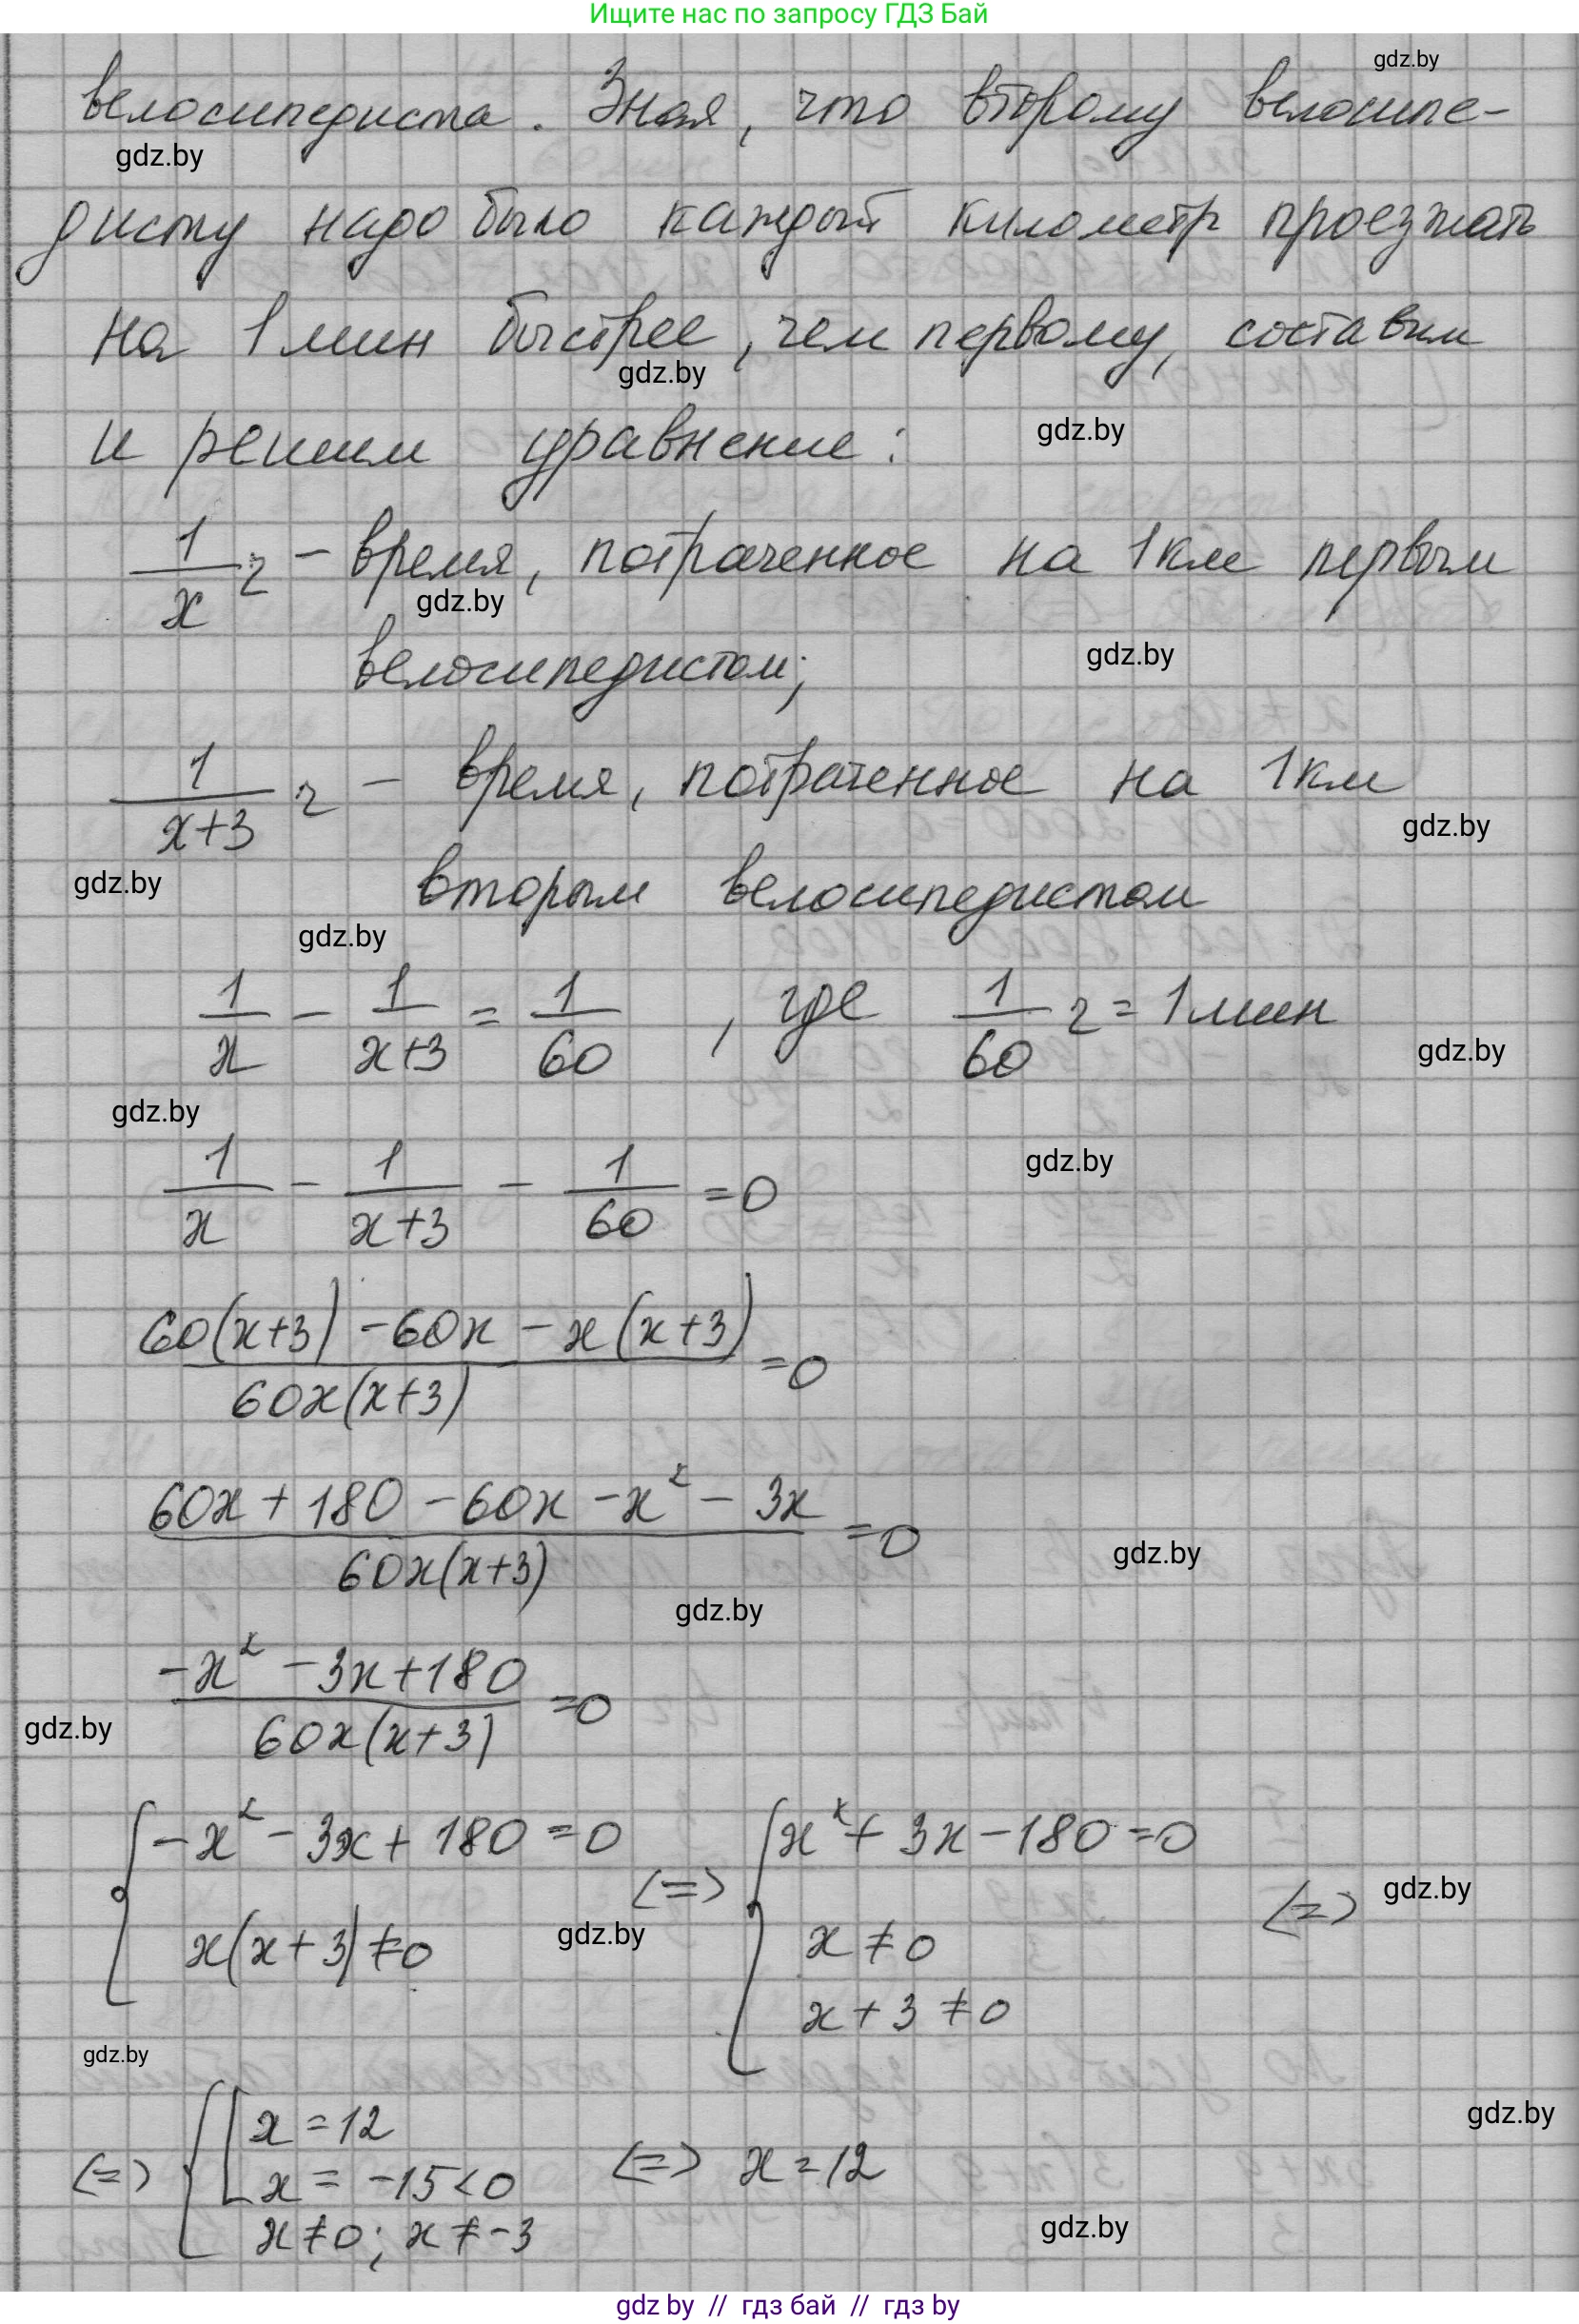 Ищите нас по запросу ГДЗ Бай
gdz.by
велосипедиста. Зная, что второму велосипе-
gdz.by
дисту надо было каждый километр проезжать
на 1 мин быстрее, чем первому, составим
gdz.by
и решим уравнение:
gdz.by
1/x ч - время, потраченное на 1км первым
gdz.by
велосипедистом;
gdz.by
1/(x+3) ч - время, потраченное на 1км
gdz.by
gdz.by
вторым велосипедистом
gdz.by
1/x - 1/(x+3) = 1/60 , где 1/60 ч = 1 мин
gdz.by
gdz.by
1/x - 1/(x+3) - 1/60 = 0
gdz.by
(60(x+3) - 60x - x(x+3))/(60x(x+3)) = 0
(60x + 180 - 60x - x² - 3x)/(60x(x+3)) = 0
gdz.by
gdz.by
(-x² - 3x + 180)/(60x(x+3)) = 0
gdz.by
{ -x² - 3x + 180 = 0 <=> { x² + 3x - 180 = 0 <=>
gdz.by
x(x+3) ≠ 0 x ≠ 0
gdz.by
x + 3 ≠ 0
gdz.by
<=> { [ x = 12
gdz.by
x = -15 < 0 <=> x = 12
x ≠ 0; x ≠ -3
gdz.by
gdz by // гдз бай // гдз by